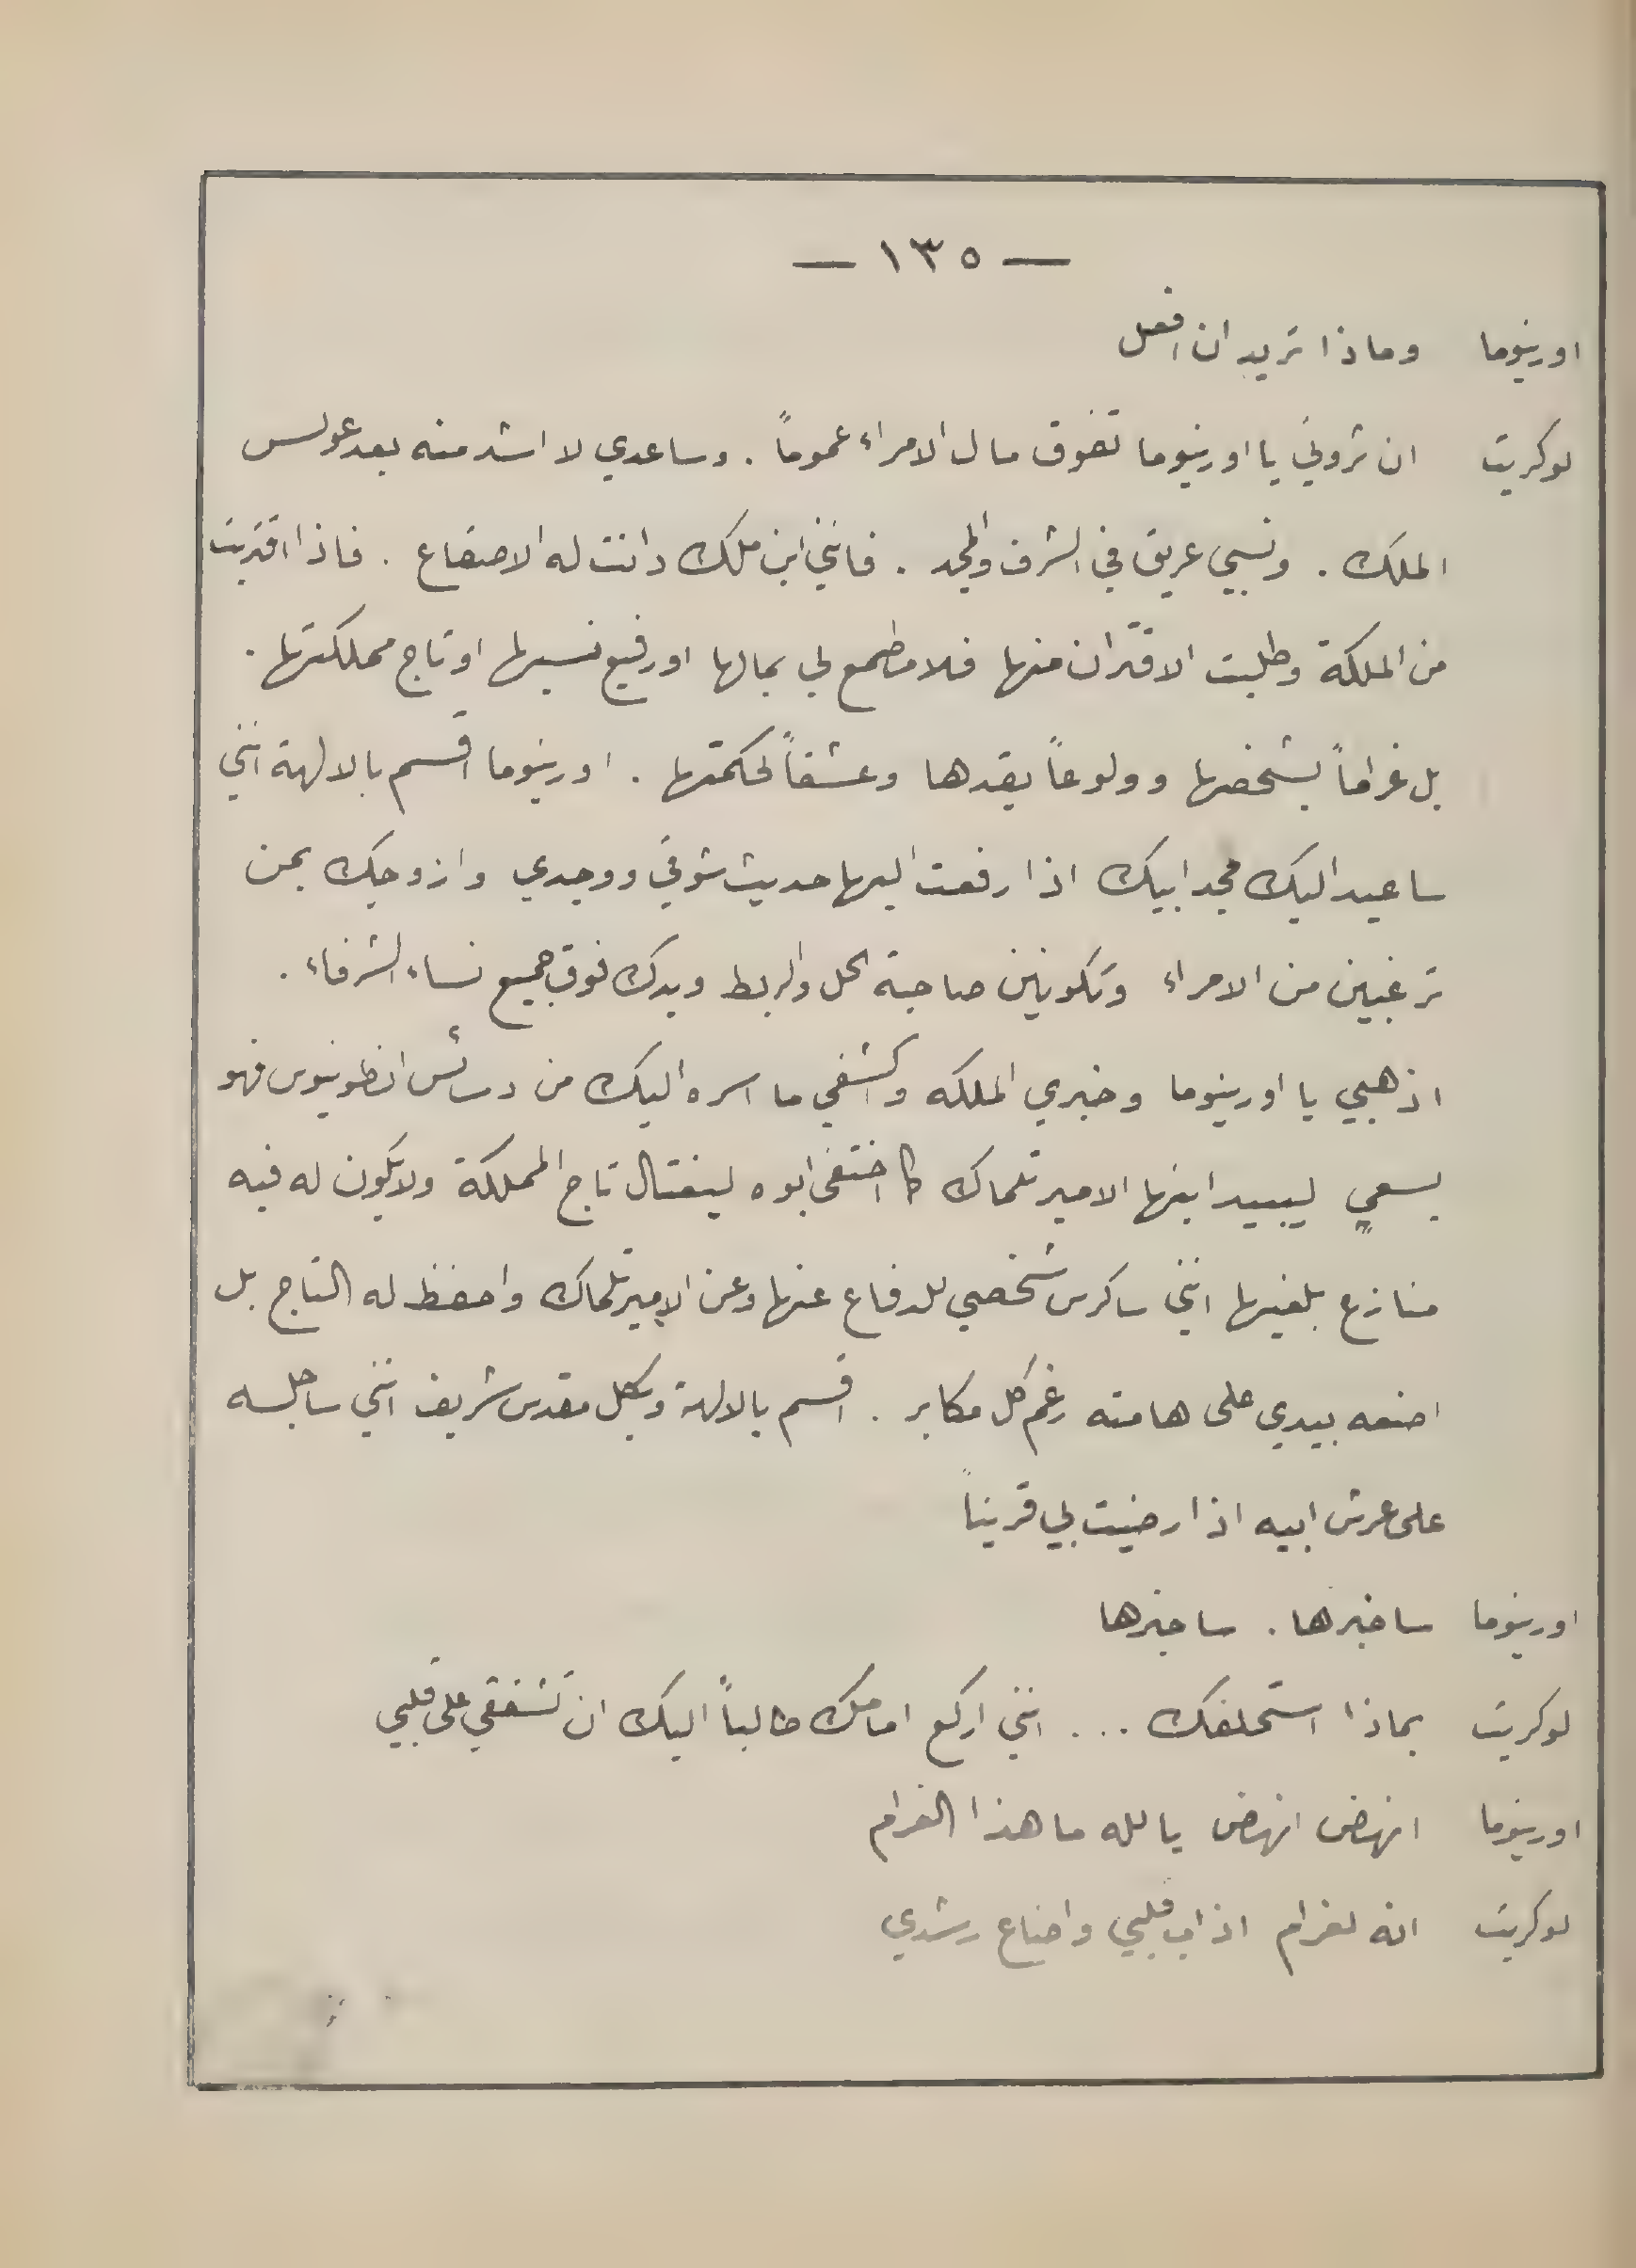 — ١٣٥ —
اورينوما وماذا تريد ان افعل
لوكريت ان ثروتي يا اورينوما تفوق مال الامراء عموماً . وساعدي لا اشد منه بعد عولس
الملك . ونسبي عريق في الشرف والمجد . فانني ابن ملك دانت له الاصقاع . فاذا اقتربت
من الملكة وطلبت الاقتران منها فلا مطمع لي بمالها او رفيع نسبها او تاج مملكتها .
بل غراماً بشخصها وولوعاً بقدها وعشقاً لحكمتها . اورينوما اقسم بالالهة انني
ساعيد اليك مجد ابيك اذا رفعت اليها حديث شوقي ووجدي وازوجك بمن
ترغبين من الامراء وتكونين صاحبة الحل والربط ويدك فوق جميع نساء الشرفاء .
اذهبي يا اورينوما وخبري الملكه واكشفي ما اسره اليك من دسائس انطونيوس فهو
يسعي ليبيد ابنها الامير تلماك كما اختفى ابوه ليغتال تاج المملكة ولا يكون له فيه
منازع بلغيها انني ساكرس شخصي للدفاع عنها وعن الامير تلماك واحفظ له التاج بل
اضعه بيدي على هامته رغم كل مكابر . اقسم بالالهة وبكل مقدس شريف انني ساجلسه
على عرش ابيه اذا رضيت بي قريناً
اورينوما ساخبرها . ساخبرها
لوكريت بماذا استحلفك ... انني اركع امامك طالباً اليك ان تشفقي على قلبي
اورينوما انهض انهض يالله ما هذا الغرام
لوكريت انه لغرام اذاب قلبي واضاع رشدي